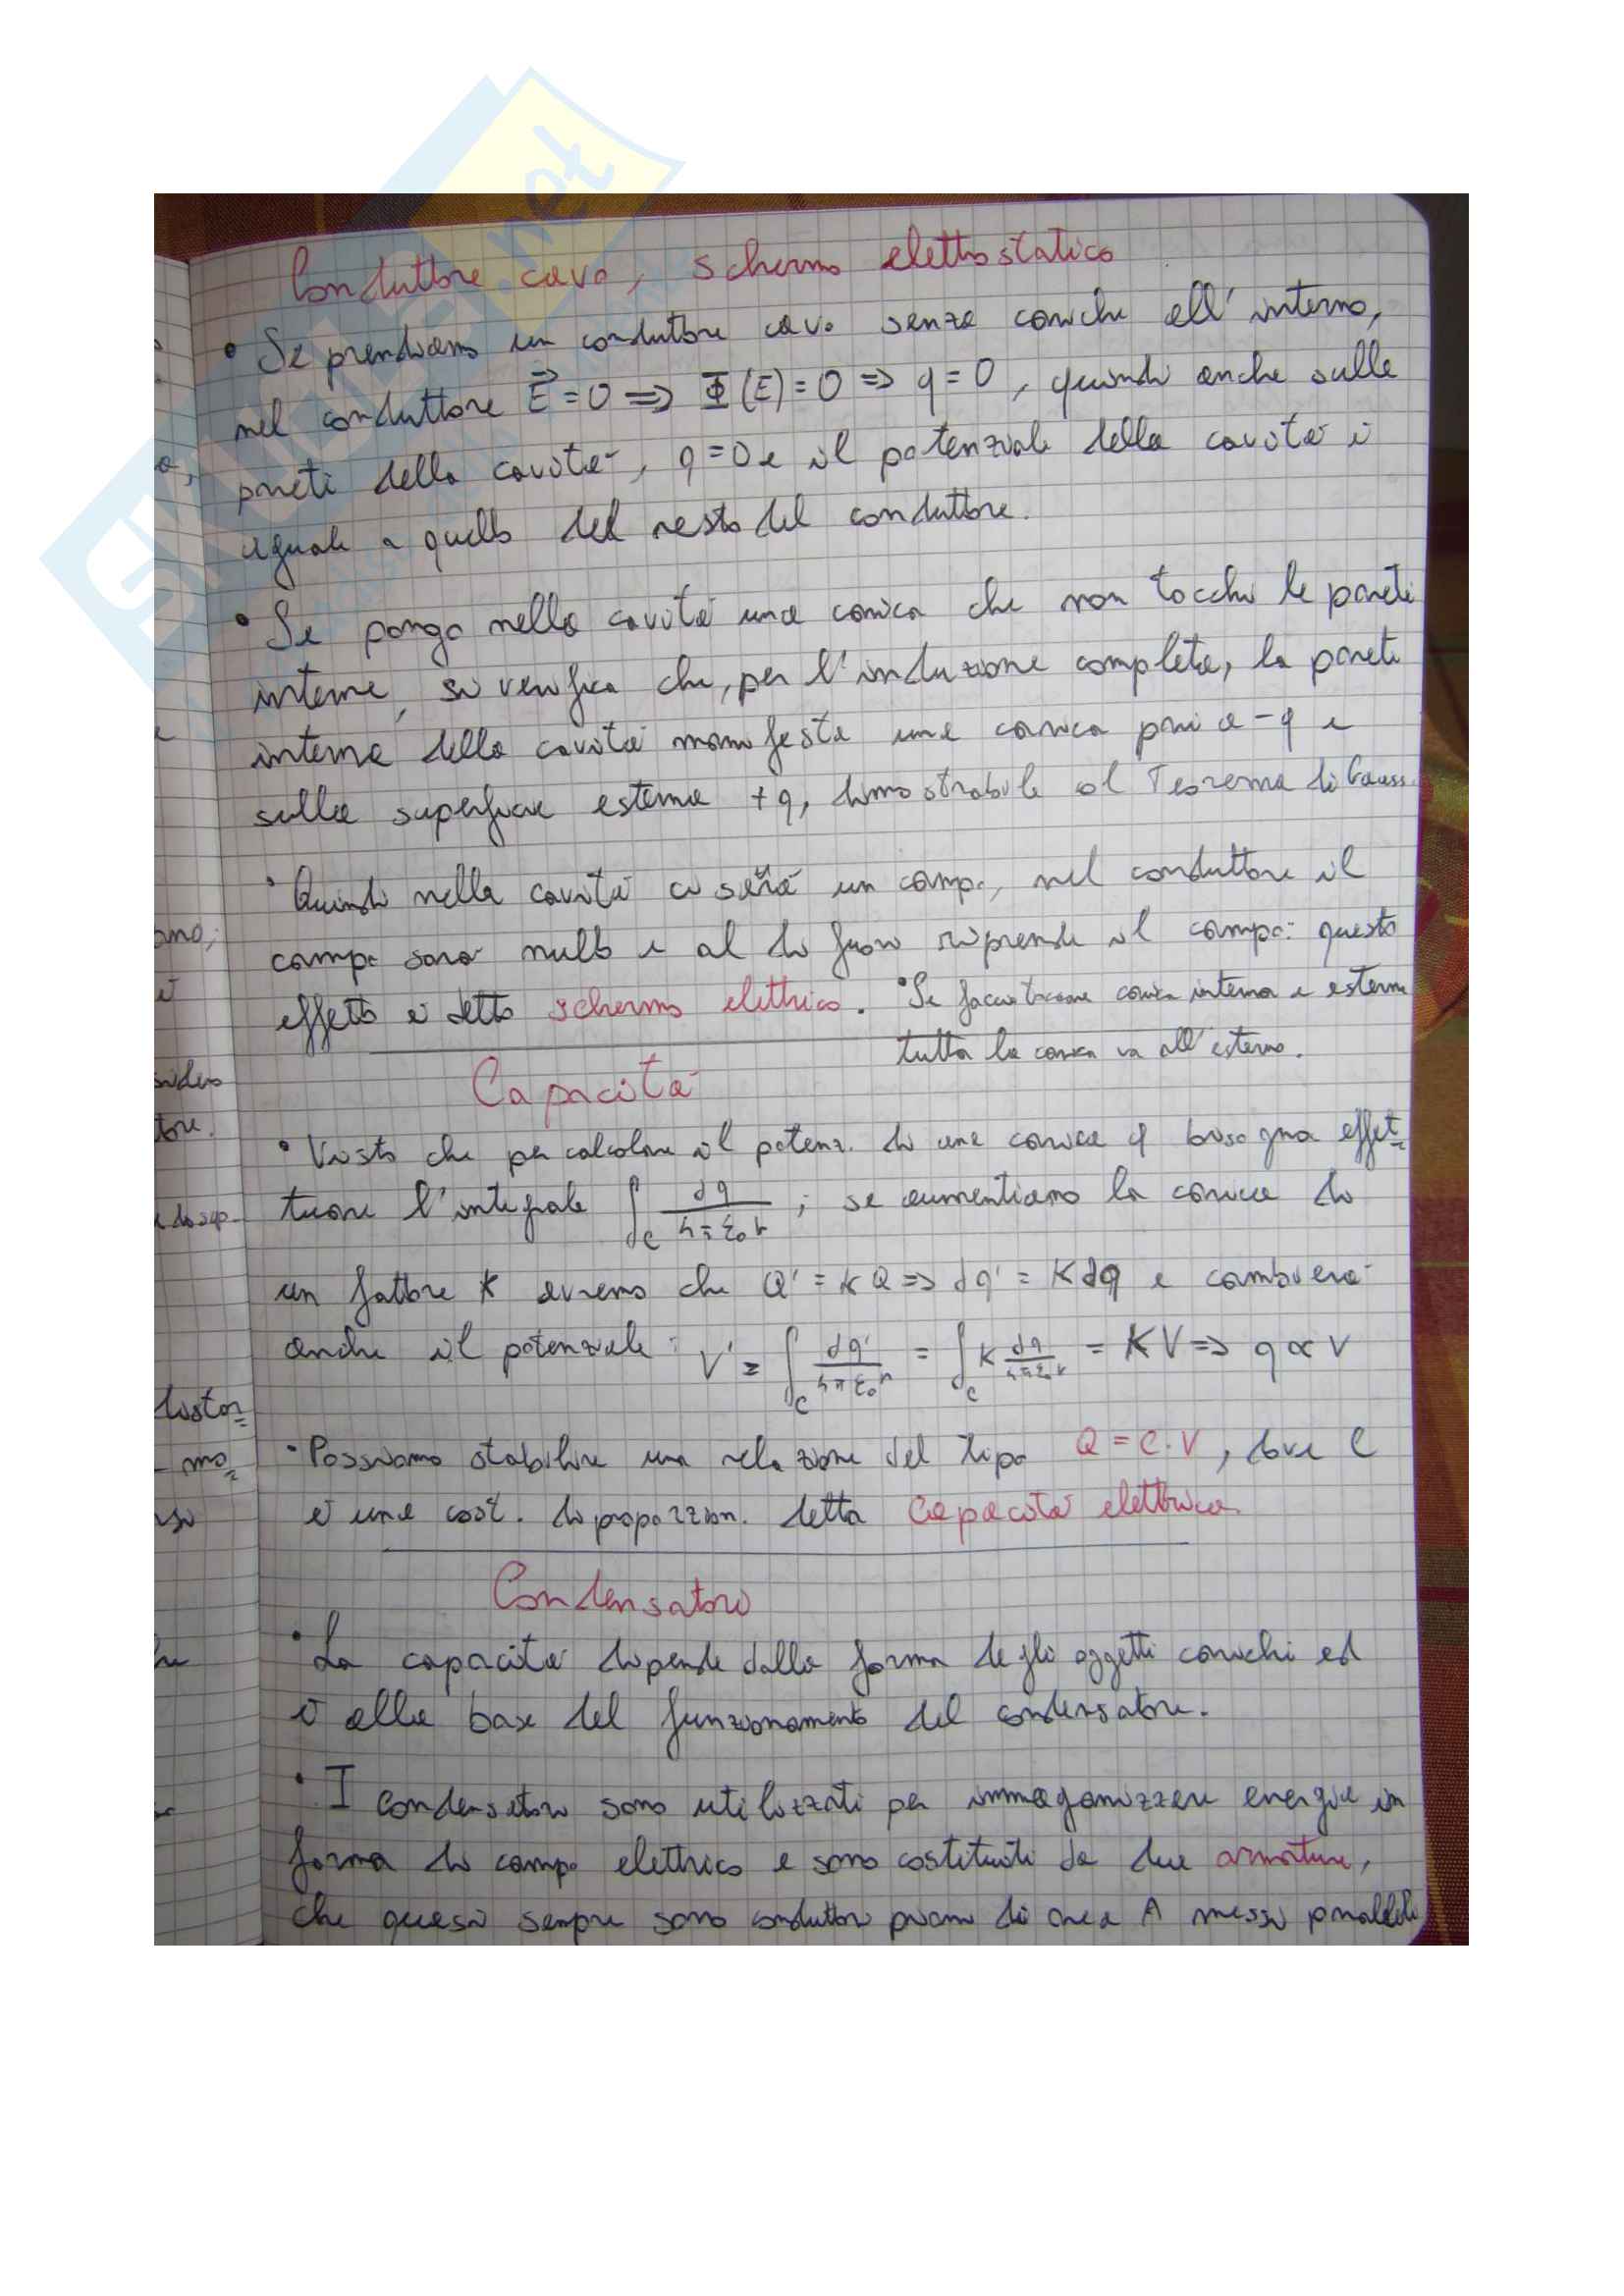 Conduttore cavo, schermo elettrostatico
• Se prendiamo un conduttore cavo senza cariche all'interno,
nel conduttore E⃗ = 0 ⇒ Φ(E) = 0 ⇒ q = 0, quindi anche sulle
pareti della cavità, q = 0 e il potenziale della cavità è
uguale a quello del resto del conduttore.
• Se pongo nella cavità una carica che non tocchi le pareti
interne, si verifica che, per l'induzione completa, la parete
interna della cavità manifesta una carica pari a -q e
sulla superficie esterna +q, dimostrabile al Teorema di Gauss.
• Quindi nella cavità ci sarà un campo, nel conduttore il
campo sarà nullo e al di fuori riprende il campo: questo
effetto è detto schermo elettrico. • Se faccio toccare carica interna e esterna
tutta la carica va all'esterno.
Capacità
• Visto che per calcolare il potenz. di una carica q bisogna effet=
tuare l'integrale ∫_C dq/4πε₀r ; se aumentiamo la carica di
un fattore K avremo che Q' = KQ ⇒ dq' = Kdq e cambierà
anche il potenziale: V' = ∫_C dq'/4πε₀r = ∫_C K dq/4πε₀r = KV ⇒ q ∝ V
• Possiamo stabilire una relazione del tipo Q = C·V, dove C
è una cost. di proporzion. detta Capacità elettrica.
Condensatori
• La capacità dipende dalla forma degli oggetti carichi ed
è alla base del funzionamento del condensatore.
• I condensatori sono utilizzati per immagazzinare energia in
forma di campo elettrico e sono costituiti da due armature,
che quasi sempre sono conduttori piani di area A messi paralleli